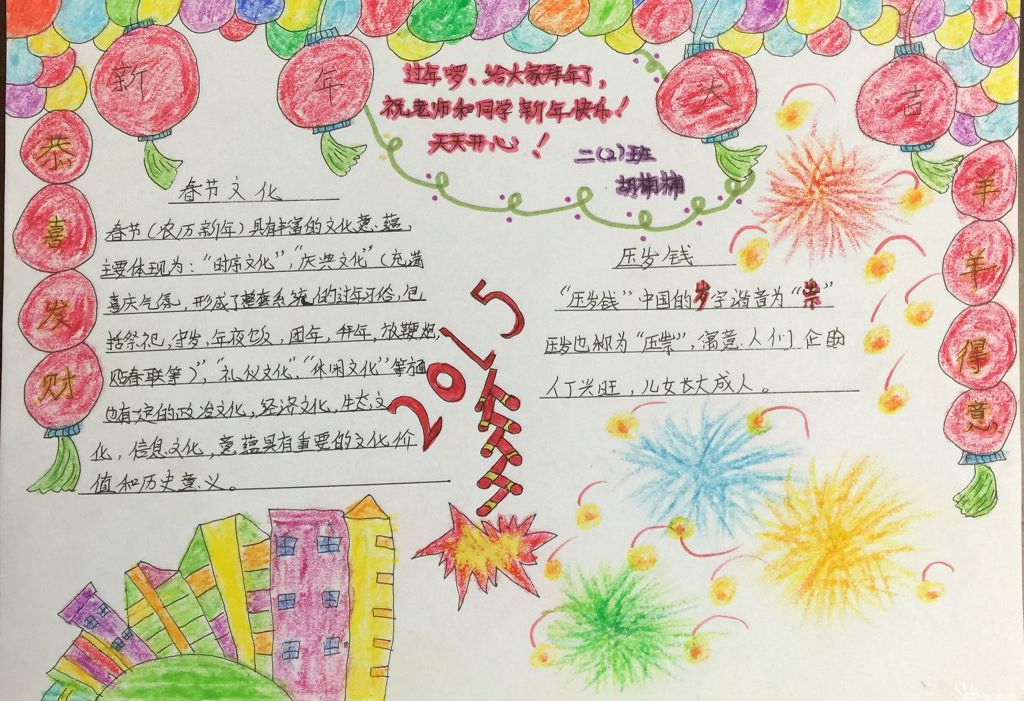 新年大吉
过年啰、给大家拜年了,
祝老师和同学新年快乐!
天天开心!
二(2)班
胡楠楠
恭喜发财
春节文化
春节(农历新年)具有丰富的文化意蕴,
主要体现为:“时序文化”,“庆典文化”(充满
喜庆气氛,形成了整套系统的过年习俗,包
括祭祀,守岁,年夜饭,团年,拜年,放鞭炮,
贴春联等)”,“礼仪文化”,“休闲文化”等方面
也有一定的政治文化,经济文化,生态文
化,信息文化,意蕴具有重要的文化价
值和历史意义。
2015
压岁钱
“压岁钱”中国的岁字谐音为“祟”
压岁也称为“压祟”,寓意人们企盼
人丁兴旺,儿女长大成人。
羊羊得意